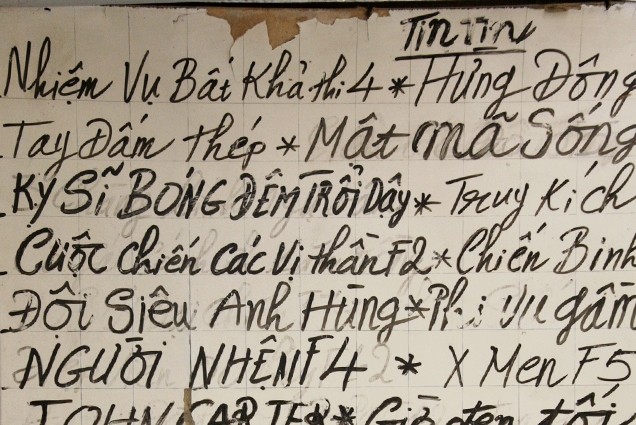 Tin Tin
Nhiệm Vụ Bất Khả thi 4 * Hừng Đông
Tay Đấm thép * Mật mã Sống
KỴ Sĩ BÓNG ĐÊM TRỔI DẬY * Truy Kích
Cuộc chiến các Vị thần F2 * Chiến Binh
Đội Siêu Anh Hùng * Phi Vụ gầm
NGƯỜI NHỆN F4 * X Men F5
JOHN CARTER * Giờ đen tối